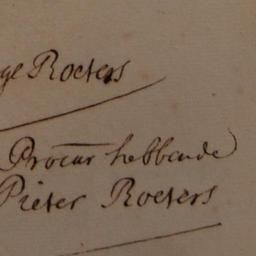 ge Roeters
Procur hebbende
Pieter Roeters